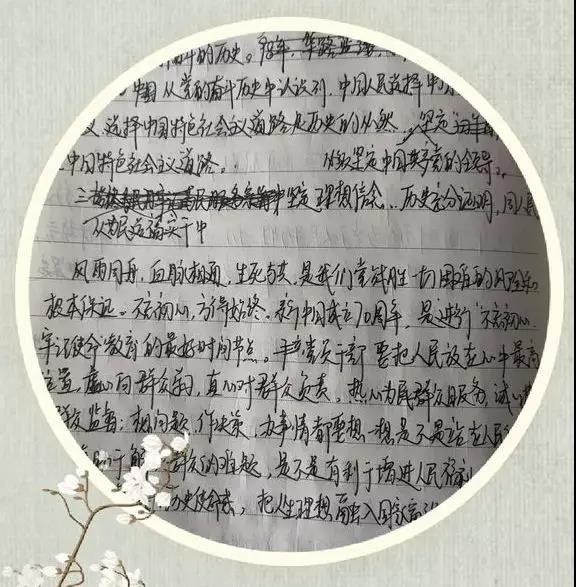 奋斗的历史。多年，筚路蓝缕，
中国从党的奋斗历史中认识到，中国人民选择中
义选择中国特色社会主义道路是历史的必然，坚定
中国特色社会主义道路。从致坚定中国共产党的领导。
三 坚定理想信念，历史充分证明，同人民
从为民造福实干中
风雨同舟，血脉相通，生死与共，是我们党战胜一切困难的风险的
根本保证。不忘初心，方得始终。新中国成立70周年，是进行"不忘初心
牢记使命"教育的最好时间节点。党员干部要把人民放在心中最高
位置，虚心向群众学，真心对群众负责，热心为民群众服务，诚心
群众监督；想问题、作决策、办事情都要想一想是不是站在人民
于解 群众的难题，是不是有利于增进人民福
历史使命感，把人生理想融入国家